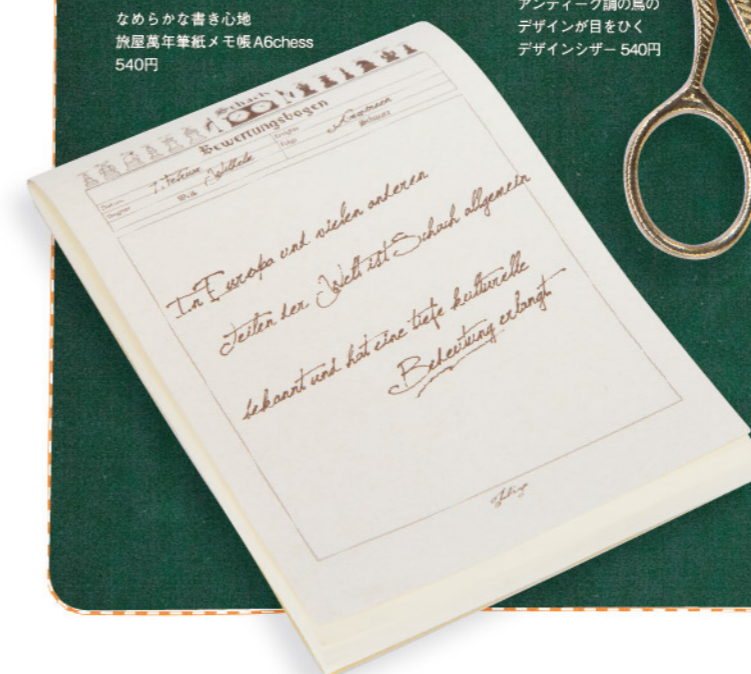 なめらかな書き心地
旅屋萬年筆紙メモ帳A6chess
540円
アンティーク調の鳥の
デザインが目をひく
デザインシザー 540円
Schach
Bewertungsbogen
In Europa und vielen anderen
Teilen der Welt ist Schach allgemein
bekannt und hat eine tiefe kulturelle
Bedeutung erlangt